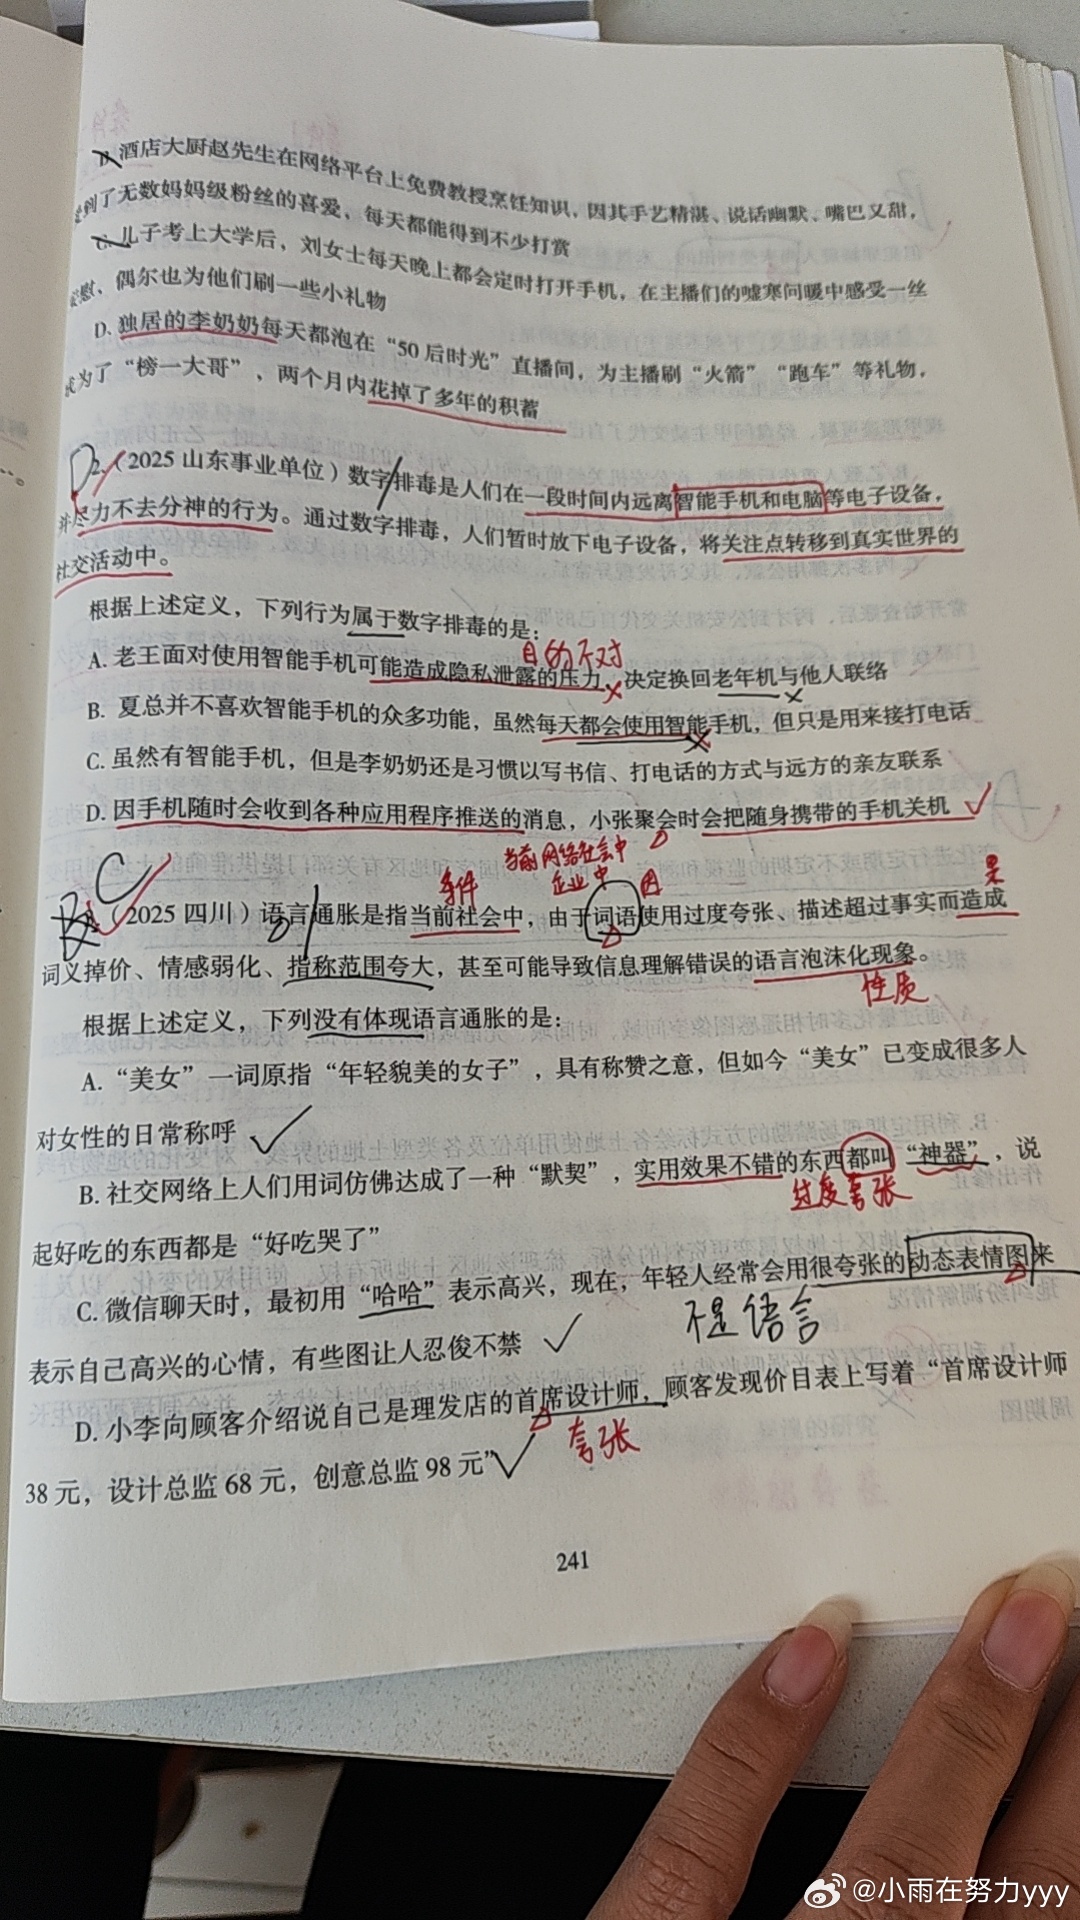 B. 酒店大厨赵先生在网络平台上免费教授烹饪知识，因其手艺精湛、说话幽默、嘴巴又甜，
受到了无数妈妈级粉丝的喜爱，每天都能得到不少打赏
C. 儿子考上大学后，刘女士每天晚上都会定时打开手机，在主播们的嘘寒问暖中感受一丝
安慰，偶尔也为他们刷一些小礼物
D. 独居的李奶奶每天都泡在“50后时光”直播间，为主播刷“火箭”“跑车”等礼物，
成为了“榜一大哥”，两个月内花掉了多年的积蓄
D
2.（2025 山东事业单位）数字排毒是人们在一段时间内远离智能手机和电脑等电子设备，
并尽力不去分神的行为。通过数字排毒，人们暂时放下电子设备，将关注点转移到真实世界的
社交活动中。
根据上述定义，下列行为属于数字排毒的是：
目的不对
A. 老王面对使用智能手机可能造成隐私泄露的压力，决定换回老年机与他人联络
B. 夏总并不喜欢智能手机的众多功能，虽然每天都会使用智能手机，但只是用来接打电话
C. 虽然有智能手机，但是李奶奶还是习惯以写书信、打电话的方式与远方的亲友联系
D. 因手机随时会收到各种应用程序推送的消息，小张聚会时会把随身携带的手机关机
C
条件
当前网络社会中
企业中
因
果
（2025 四川）语言通胀是指当前社会中，由于词语使用过度夸张、描述超过事实而造成
词义掉价、情感弱化、指称范围夸大，甚至可能导致信息理解错误的语言泡沫化现象。
性质
根据上述定义，下列没有体现语言通胀的是：
A. “美女”一词原指“年轻貌美的女子”，具有称赞之意，但如今“美女”已变成很多人
对女性的日常称呼
B. 社交网络上人们用词仿佛达成了一种“默契”，实用效果不错的东西都叫“神器”，说
过度夸张
起好吃的东西都是“好吃哭了”
C. 微信聊天时，最初用“哈哈”表示高兴，现在，年轻人经常会用很夸张的动态表情图来
不是语言
表示自己高兴的心情，有些图让人忍俊不禁
D. 小李向顾客介绍说自己是理发店的首席设计师，顾客发现价目表上写着“首席设计师
夸张
38 元，设计总监 68 元，创意总监 98 元”
241
@小雨在努力yyy